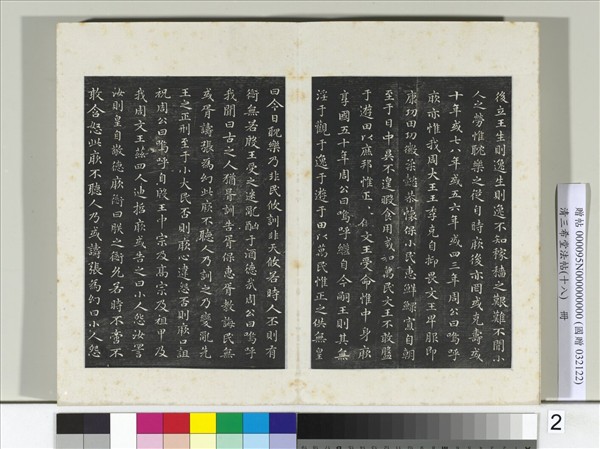 後立王生則逸生則逸不知稼穡之艱難不聞小
人之勞惟耽樂之從自時厥後亦罔或克壽或
十年或七八年或五六年或四三年周公曰嗚呼
厥亦惟我周大王王季克自抑畏文王卑服即
康功田功徽柔懿恭懷保小民惠鮮鰥寡自朝
至于日中昃不遑暇食用咸和萬民文王不敢盤
于遊田以庶邦惟正文王受命惟中身厥
享國五十年周公曰嗚呼繼自今嗣王則其無
淫于觀于逸于遊于田以萬民惟正之供無皇
曰今日耽樂乃非民攸訓非天攸若時人丕則有
愆無若殷王受之迷亂酗于酒德哉周公曰嗚呼
我聞曰古之人猶胥訓告胥保惠胥教誨民無
或胥譸張為幻此厥不聽人乃訓之乃變亂先
王之正刑至于小大民否則厥心違怨否則厥口詛
祝周公曰嗚呼自殷王中宗及高宗及祖甲及
我周文王茲四人迪哲厥或告之曰小人怨汝詈
汝則皇自敬德厥愆曰朕之愆允若時不啻不
敢含怒此厥不聽人乃或譸張為幻曰小人怨
贈帖 000095N000000000 (國贈 032122)
清三希堂法帖(十八) 冊
2